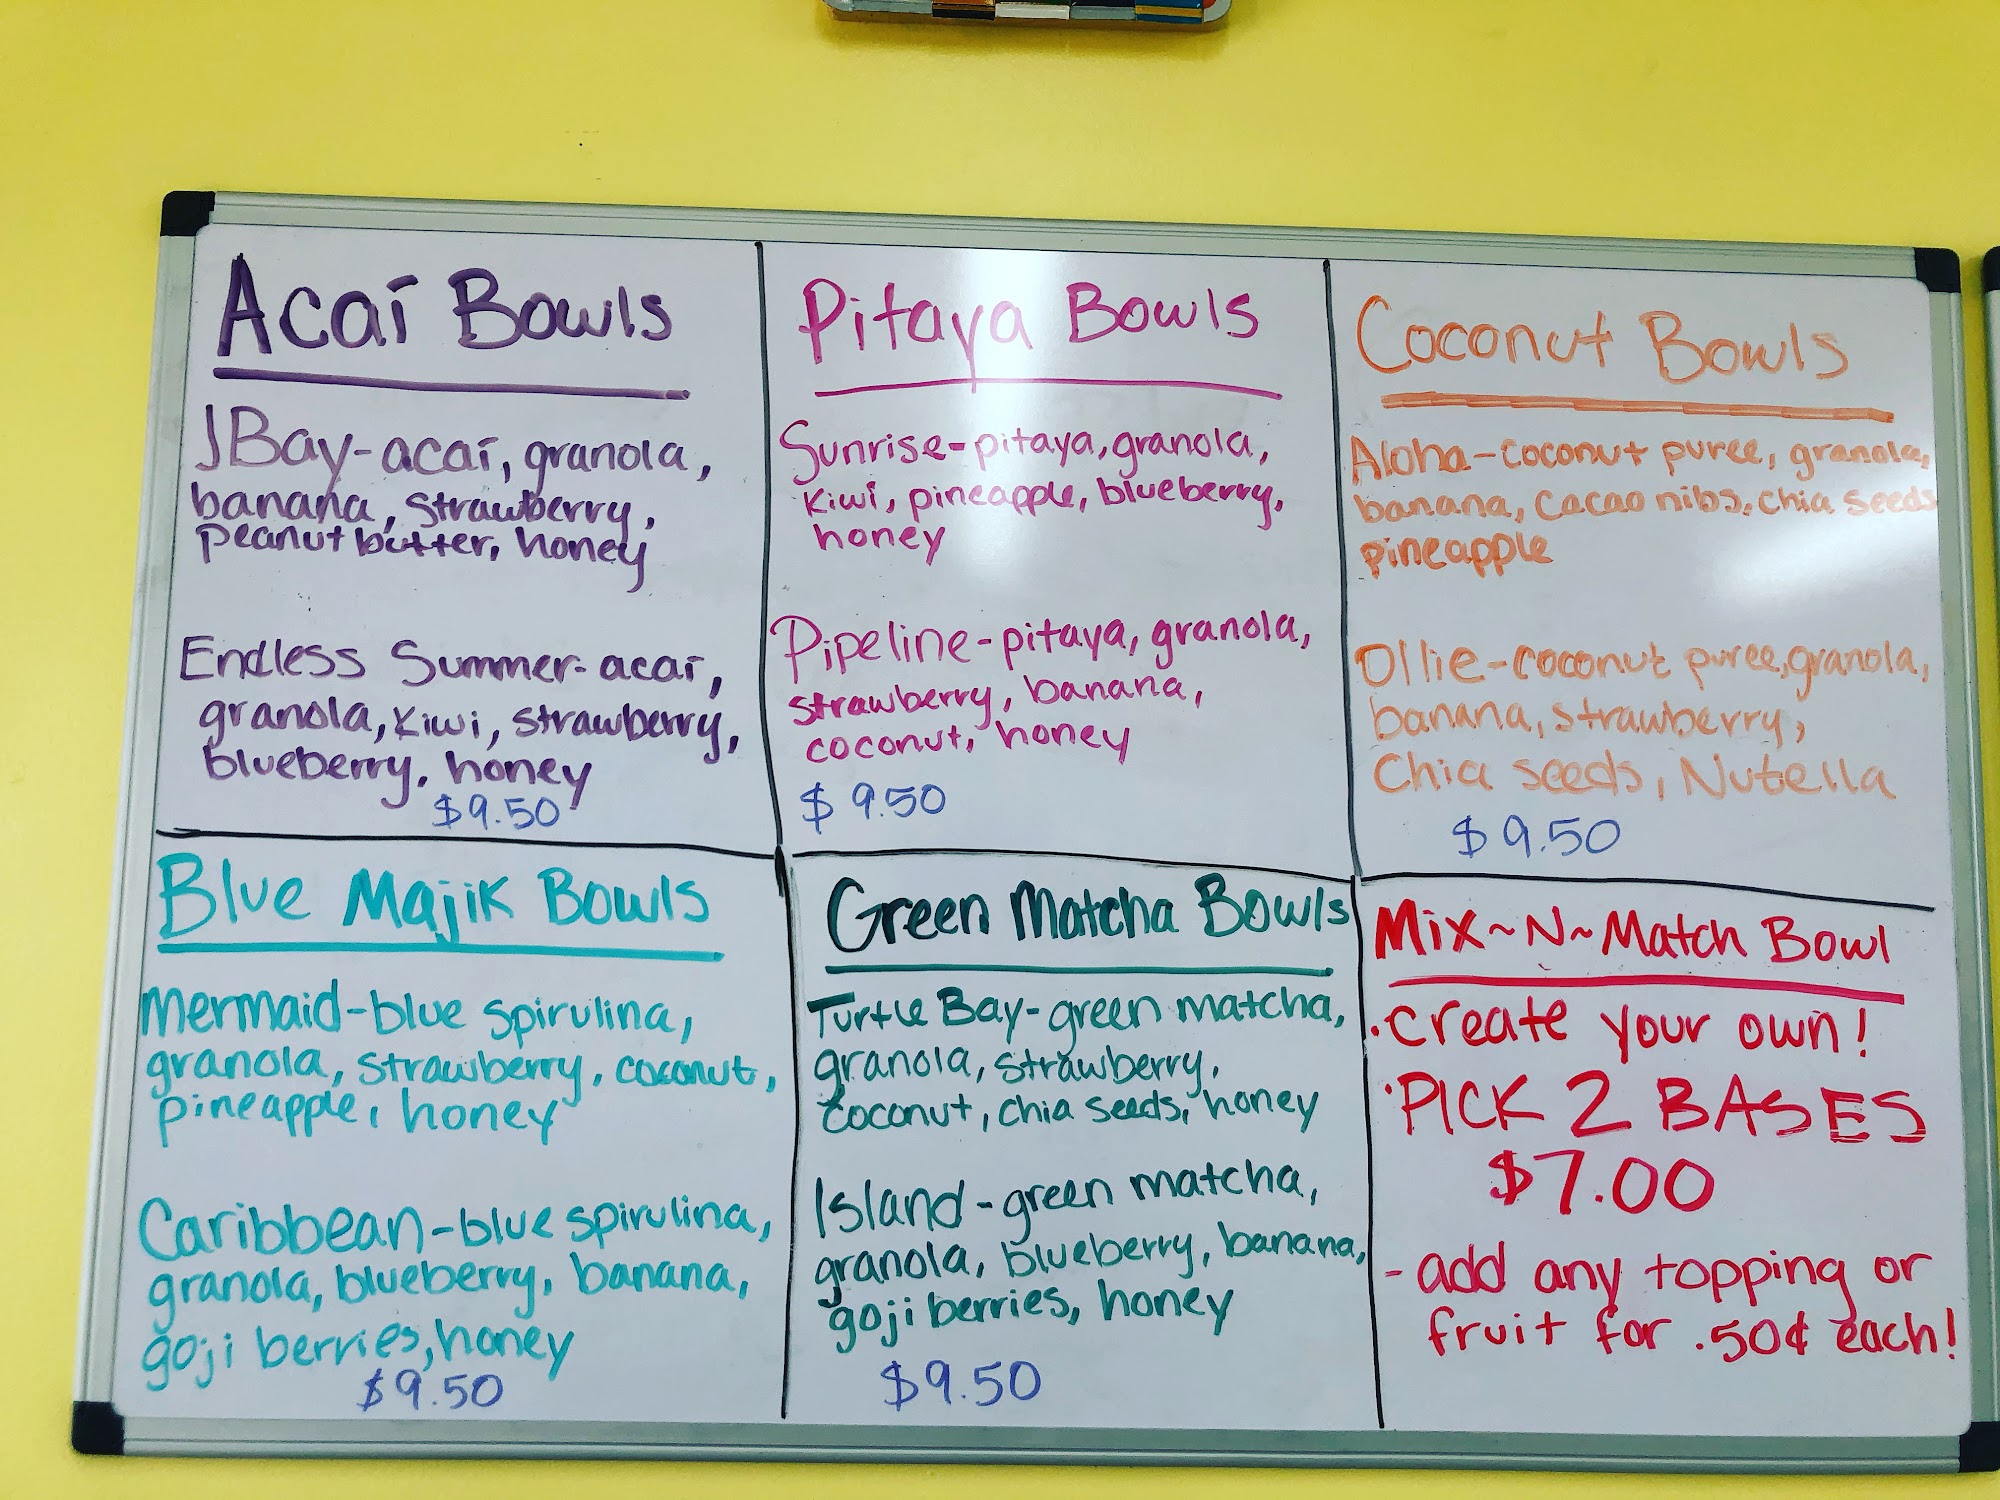 Acaí Bowls
JBay-acaí, granola,
banana, strawberry,
peanut butter, honey
Endless Summer-acaí,
granola, kiwi, strawberry,
blueberry, honey
$9.50
Pitaya Bowls
Sunrise-pitaya, granola,
kiwi, pineapple, blueberry,
honey
Pipeline-pitaya, granola,
strawberry, banana,
coconut, honey
$9.50
Coconut Bowls
Aloha-coconut puree, granola,
banana, cacao nibs, chia seeds
pineapple
Ollie-coconut puree, granola,
banana, strawberry,
Chia seeds, Nutella
$9.50
Blue Majik Bowls
Mermaid-blue spirulina,
granola, strawberry, coconut,
pineapple, honey
Caribbean-blue spirulina,
granola, blueberry, banana,
goji berries, honey
$9.50
Green Matcha Bowls
Turtle Bay-green matcha,
granola, strawberry,
coconut, chia seeds, honey
Island-green matcha,
granola, blueberry, banana,
goji berries, honey
$9.50
Mix~N~Match Bowl
·Create your own!
·PICK 2 BASES
$7.00
- add any topping or
fruit for .50¢ each!